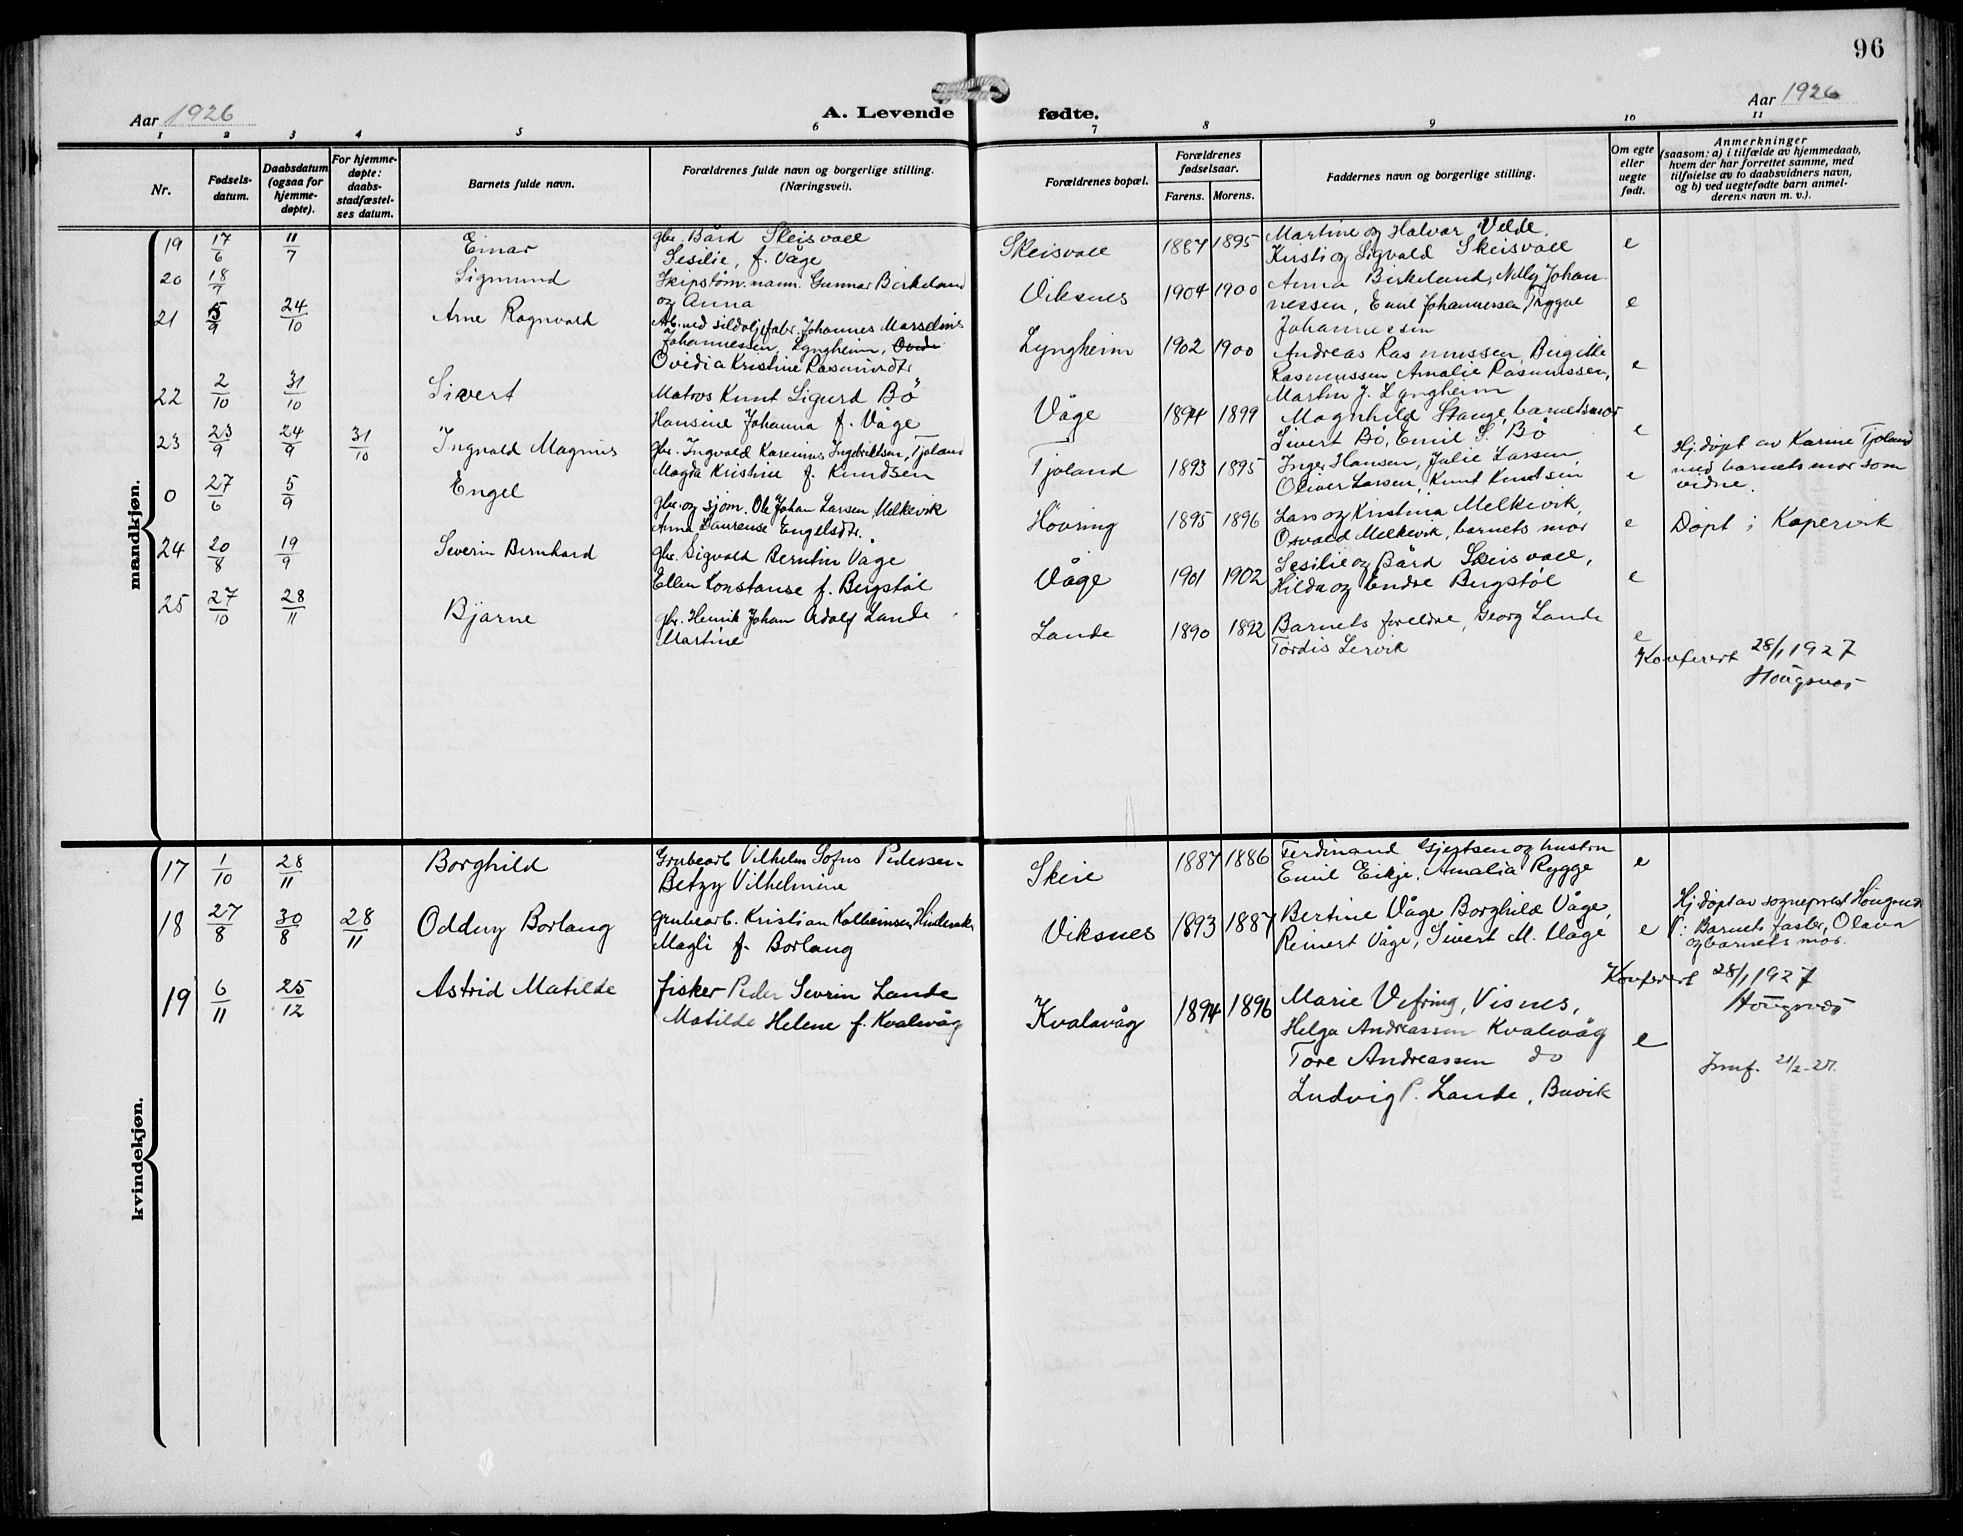 96
Aar 1926
A. Levende fødte.
Aar 1926
1 2 3 4 5 6 7 8 9 10 11
Nr.
Fødsels-
datum.
Daabsdatum
(ogsaa for
hjemme-
døpte).
For hjemme-
døpte:
daabs-
stadfæstel-
ses datum.
Barnets fulde navn.
Forældrenes fulde navn og borgerlige stilling.
(Næringsvei).
Forældrenes bopæl.
Forældrenes
fødselsaar.
Farens. Morens.
Faddernes navn og borgerlige stilling.
Om egte
eller
uegte
født.
Anmerkninger
(saasom: a) i tilfælde av hjemmedaab,
hvem der har forrettet samme, med
tilføielse av to daabsvidners navn,
og b) ved uegtefødte barn anmel-
derens navn m. v.).
mandkjøn.
19 17/6 11/7 Einar
gbr. Bård Skeisvoll
Sesilie, f. Våge
Skeisvoll 1887 1895
Martine og Halvar Velde.
Kirsti og Sigvald Skeisvoll
e
20 18/7 Sigmund
Skipstøm.mann. Gunnar Birkeland
og Anna
Viksnes 1904 1900
Anna Birkeland, Nelly Johan-
nessen, Emil Johannessen Trygve
Johannessen
e
21 5/9 24/10 Arne Ragnvald
Arb. ved sildoljefabr. Johannes Marselius
Johannessen, Lyngheim,
Ovidia Kristine Rasmusdtr
Lyngheim 1902 1900
Andreas Rasmussen, Birgitte
Rasmussen Amalie Rasmussen,
Martin J. Lyngheim
e
22 2/10 31/10 Sivert
Matros Knut Sigurd Bö
Hansine Johanna f. Våge
Våge 1894 1899
Magnhild Stange, barnets mor
Sivert Bö, Emil S. Bö
e
23 23/9 24/9 31/10 Ingvald Magnus
gbr. Ingvald Kasemius Ingebriktsen, Tjoland
Magda Kristine f. Knudsen
Tjoland 1893 1895
Inger Hansen, Julie Larsen
Oliver Larsen, Knut Knutsen
e
Hj.döpt av Karine Tjoland
med barnets mor som
vidne.
0 27/6 5/9 Engel
gbr. og sjöm. Ole Johan Larsen Melkevik
Anna Laurense Engelsdtr.
Hövring 1895 1896
Lars og Kristina Melkevik,
Osvald Melkevik, barnets mor
e
Döpt i Kopervik
24 20/8 19/9 Severin Bernhard
gbr. Sigvald Berntin Våge
Ellen Konstanse f. Bergstöl
Våge 1901 1902
Sesilie og Bård Skeisvoll,
Hilda og Endre Bergstöl
e
25 27/10 28/11 Bjarne
gbr. Henrik Johan Adolf Lande
Martine
Lande 1890 1892
Barnets foreldre, Georg Lande
Tordis Lervik
e
Konferert 28/1 1927
Hougsnæs
kvindekjøn.
17 1/10 28/11 Borghild
Grubearb Vilhelm Sofus Pedersen
Betzy Vilhelmine
Skeie 1887 1886
Ferdinand Gjertsen og hustru
Emil Eikje, Amalia Rygge
e
18 27/8 30/8 28/11 Oddny Borlaug
grubearb. Kristian Kolbeinsen Hinderaker
Magli f. Borlaug
Viksnes 1893 1887
Bertine Våge Borghild Våge,
Reinert Våge, Sivert M. Våge
e
Hj.döpt av sogneprest Hougsnæs
V: Barnets faster, Olava
og barnets mor.
Konferert 28/1 1927
Hougsnæs
19 6/11 25/12 Astrid Matilde
fisker Peder Sevrin Lande
Matilde Helene f. Kvalevåg
Kvalavåg 1894 1896
Marie Vefring, Visnes,
Helga Andreassen Kvalevåg
Tore Andreassen do
Ludvig P. Lande, Buvik
e
Jmnf. 21/2-27.